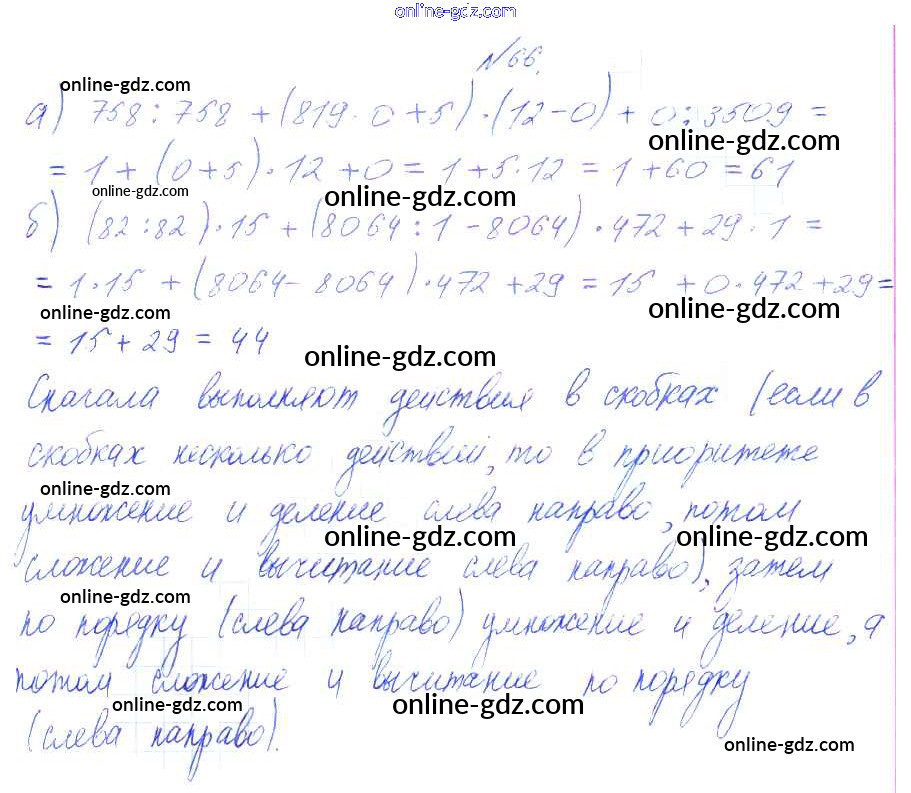 online-gdz.com
№66.
online-gdz.com
а) 758 : 758 + (819 · 0 + 5) · (12 - 0) + 0 : 3509 =
online-gdz.com
= 1 + (0 + 5) · 12 + 0 = 1 + 5 · 12 = 1 + 60 = 61
online-gdz.com
online-gdz.com
б) (82 : 82) · 15 + (8064 : 1 - 8064) · 472 + 29 · 1 =
online-gdz.com
= 1 · 15 + (8064 - 8064) · 472 + 29 = 15 + 0 · 472 + 29 =
online-gdz.com
online-gdz.com
= 15 + 29 = 44
online-gdz.com
Сначала выполняют действия в скобках (если в
скобках несколько действий, то в приоритете
online-gdz.com
умножение и деление слева направо, потом
online-gdz.com
online-gdz.com
сложение и вычитание слева направо), затем
online-gdz.com
по порядку (слева направо) умножение и деление, а
online-gdz.com
потом сложение и вычитание по порядку
online-gdz.com
online-gdz.com
(слева направо).
online-gdz.com